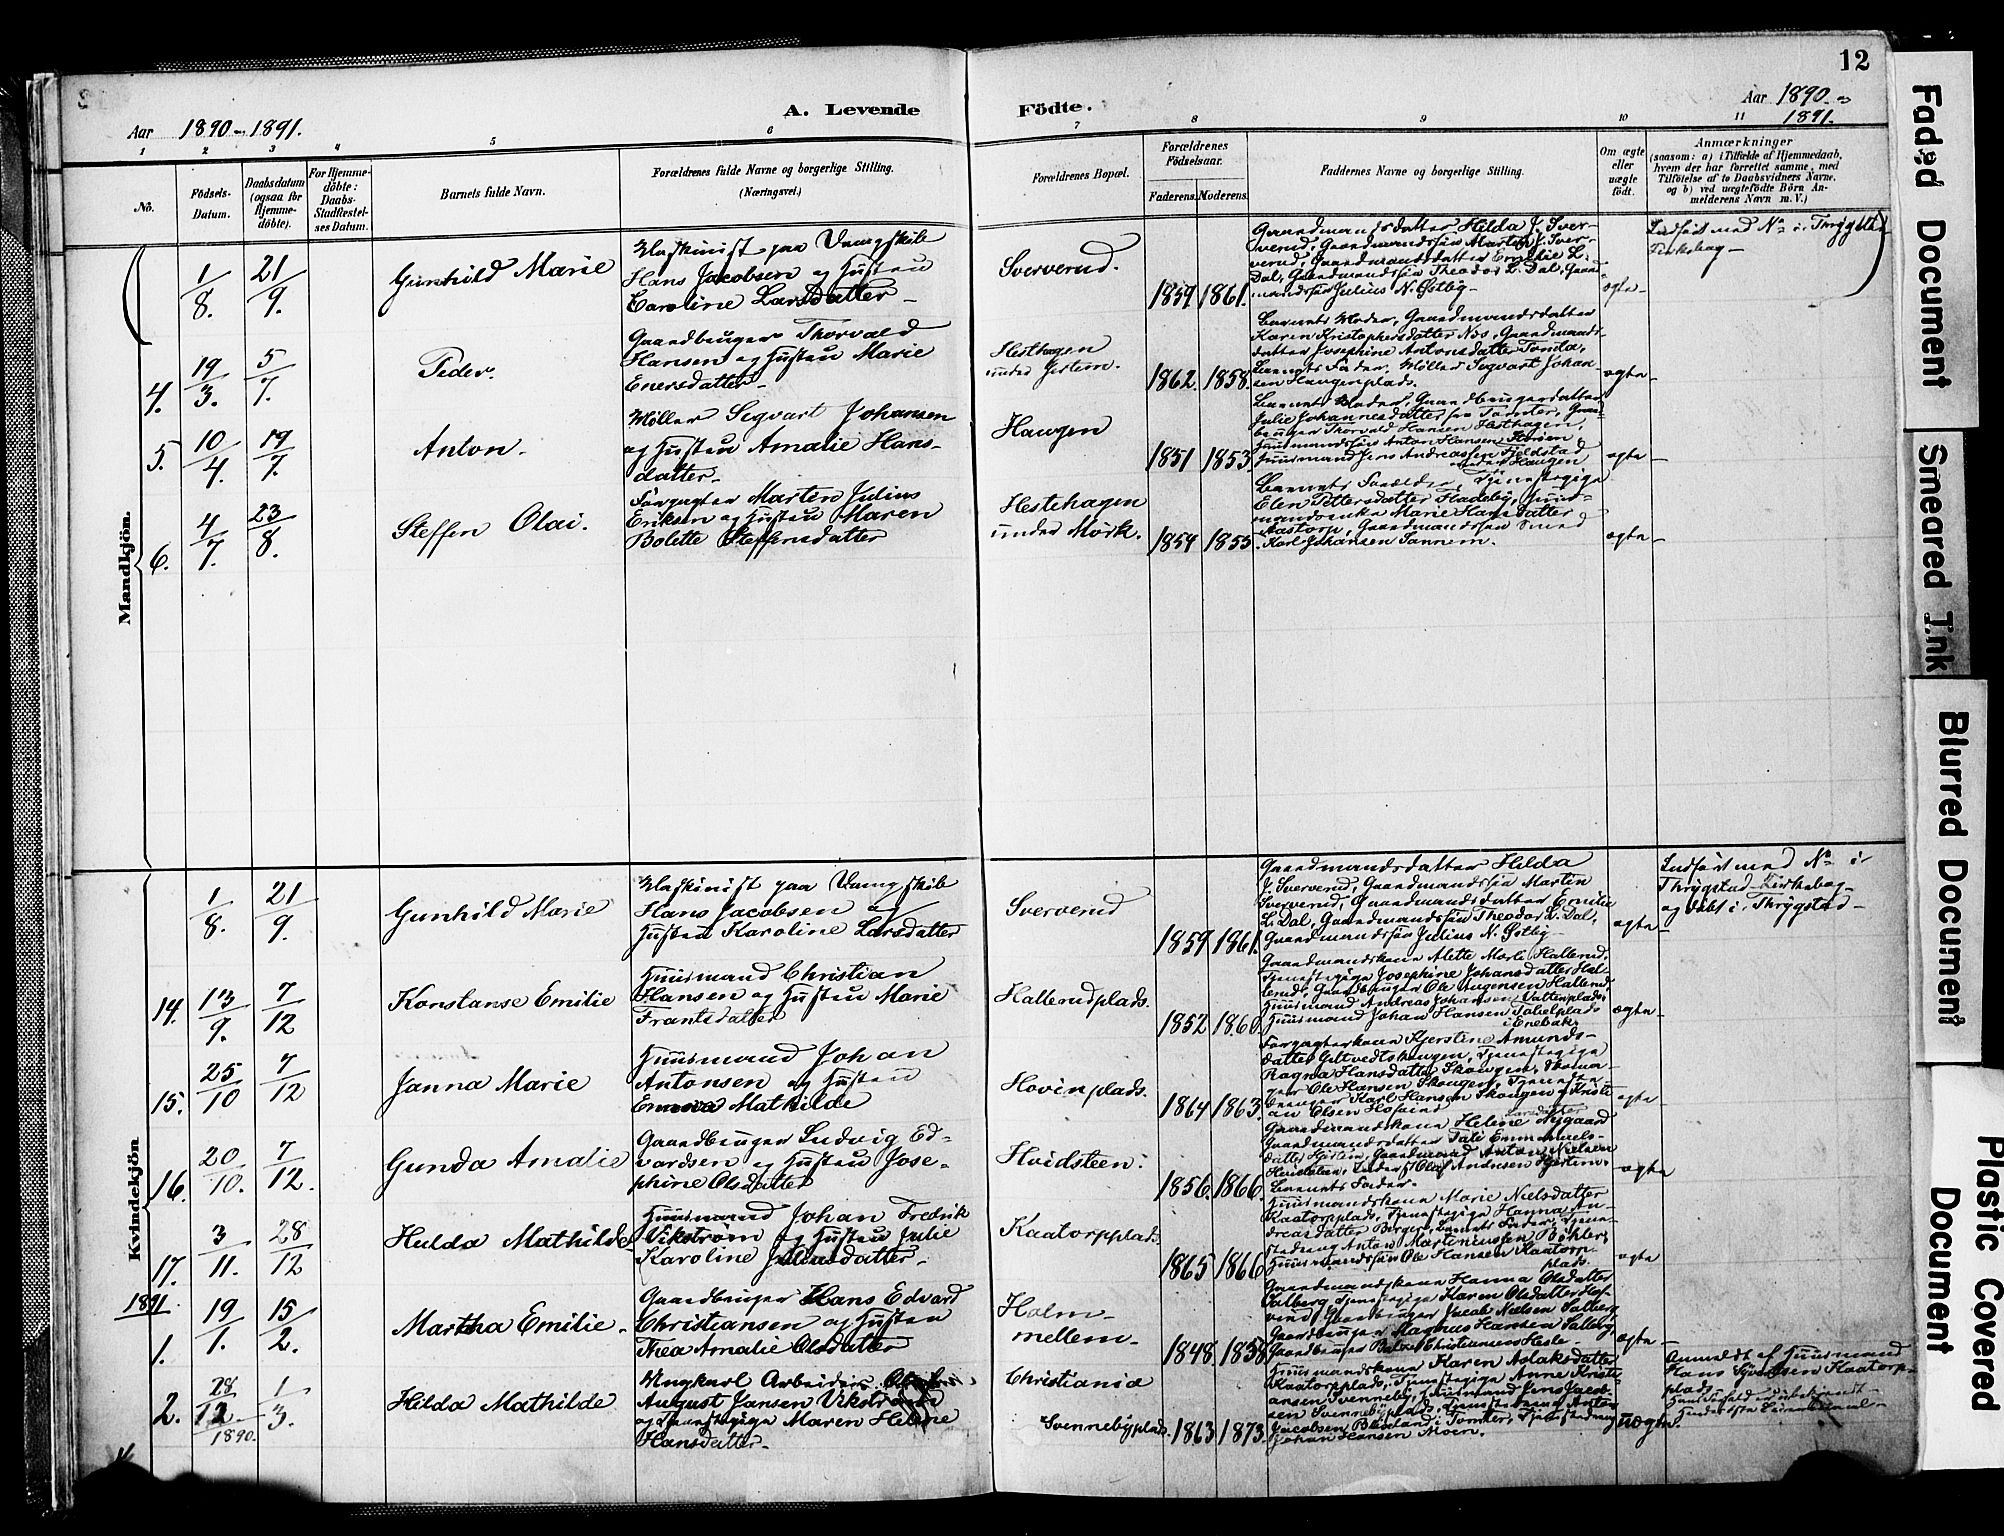 12
Aar 1890-1891.
A. Levende
Födte.
Aar 1890-
1891.
1 2 3 4 5 6 7 8 9 10 11
No.
Födsels-
Datum.
Daabsdatum
(ogsaa for
Hjemme-
döbte).
For Hjemme-
döbte:
Daabs-
Stadfæstel-
ses Datum.
Barnets fulde Navn.
Forældrenes fulde Navne og borgerlige Stilling.
(Næringsvei.)
Forældrenes Bopæl.
Forældrenes
Födselsaar.
Faderens. Moderens.
Faddernes Navne og borgerlige Stilling.
Om ægte
eller
uægte
födt.
Anmærkninger
(saasom: a) i Tilfælde af Hjemmedaab,
hvem der har forrettet samme, med
Tilföielse af to Daabsvidners Navne,
og b) ved uægtefödte Börn An-
melderens Navn m. V.)
Mandkjön.
1/8. 21/9. Gunhild Marie
Maskinist paa Dampskib
Hans Jacobsen og Hustru
Caroline Larsdatter
Sververud.
1859 1861.
Gaardmandsdatter Hilda J. Sver-
verud, Gaardmandssøn Martin J. Sver-
verud, Gaardmandsdatter Emilie L.
Dal, Gaardmandssøn Theodor L. Dal, Gaard-
mandssøn Julius N. Østby
ægte
Indført med No i Thrygstad
Kirkebog
4. 19/3. 5/7. Peder.
Gaardbruger Thorvald
Hansen og Hustru Marie
Enersdatter
Hesthagen
under Hjertem.
1862. 1858.
Barnets Moder, Gaardmandsdatter
Karen Kristophersdatter Næs, Gaardmands-
datter Josephine Antonsdatter Tomta,
Barnets Fader, Møller Segvart Johan-
sen Haugenplads.
ægte
5. 10/4. 19/7. Anton.
Møller Segvart Johansen
og Hustru Amalie Hans-
datter
Haugen
1851 1853.
Barnets Moder, Gaardbrugerdatter
Julie Johannesdatter fra Tomter, Gaard-
bruger Thorvald Hansen Hesthagen,
Huusmandssøn Anton Hansen
Huusmand Jens Andreassen Fjeldstad
under Haugen
ægte
6. 4/7. 23/8. Steffen Olai.
Forpagter Martin Julius
Eriksen og Hustru Maren
Bolette Steffensdatter
Hestehagen
under Mørk.
1854 1855.
Barnets Forældre, Tjenestepige
Elen Pettersdatter Fladeby, Huus-
mandsenke Marie Hansdatter
Gaardmandssøn Smed
Karl Johansen Sannem.
ægte
Kvindekjön.
1/8. 21/9. Gunhild Marie
Maskinist paa Dampskib
Hans Jacobsen og
Hustru Karoline Larsdatter
Sververud
1859 1861.
Gaardmandsdatter Hilda
J. Sververud, Gaardmandssøn Martin
Sververud, Gaardmandsdatter Emilie
L. Dal, Gaardmandssøn Theodor L. Dal,
Gaardmandssøn Julius N. Østby
ægte
Indført med No i
Thrygstad Kirkebog
og døbt i Thrygstad
14. 13/9. 7/12 Konstanse Emilie
Huusmand Christian
Hansen og Hustru Marie
Frantsdatter
Hallerudplads.
1852 1860.
Gaardmandskone Alette Marie Hallerud,
Tjenestepige Josephine Johansdatter Hal-
lerud, Gaardbruger Ole Hallerud,
Huusmand Andreas Johansen
Huusmand Johan Hansen
i Enebak
ægte
15. 25/10 7/12 Janna Marie
Huusmand Johan
Antonsen og Hustru
Emma Mathilde
Hovinplads.
1864 1863.
Forpagterkone Kjerstine Amunds-
datter Tjenestepige
Ragna Hansdatter Skougen,
Ole Hansen Skougen,
Karl Hansen Skougen, Kristi-
an Olsen
ægte
16. 20/10. 7/12. Gunda Amalie
Gaardbruger Ludvig Ed-
vardsen og Hustru Jose-
phine Olsdatter
Hvidsteen.
1856. 1866.
Gaardmandskone Helene Larsdatter Nygaard
Gaardmandsdatter Emmanuels-
datter Gaardmand Anton Nielsen
Hvidsteen, Olaf Andresen Hjertem.
Barnets Fader.
ægte
17. 3/11. 28/12 Hulda Mathilde
Huusmand Johan Fredrik
Vikstrøm og Hustru Julie
Karoline Juliusdatter.
Kaatorpplads.
1865 1866.
Huusmandskone Marie Nielsdatter
Kaatorpplads, Tjenestepige Hanna An-
dreasdatter Berger, Barnets Fader, Tjene-
stedreng Anton Martiniussen
Huusmandssøn Ole Hansen Kaatorp-
plads.
ægte
1891.
1. 19/1. 15/2. Martha Emilie
Gaardbruger Hans Edvard
Christiansen og Hustru
Thea Amalie Olsdatter
Holm-
mellem
1848. 1858.
Gaardmandskone Hanna Olsdatter
Salberg, Tjenestepige Karen Olsdatter Hof-
vind, Gaardbruger Jacob Nielsen Salberg,
Gaardbruger Magnus Hansen Salberg,
Gaardbruger Christiansen
ægte
2. 28/12 1890. 1/3. Hilda Mathilde
Ungkarl Arbeider
August Jansen Vikstrøm
og Tjenestepige Maren Helene
Hansdatter
Christiania
Svennebyplads.
1863 1873.
Huusmandskone Karen Aslaksdatter
Kaatorpplads, Tjenestepige Anne Kristi-
ansen Svenneby, Huusmand Jens Jacob-
sen Svennebyplads, Anton
Jacobsen i Tomter, Tjenestedreng
Johan Hansen Moen.
uægte.
Anmeldt af Huusmand
Hans Syversen Kaatorp-
plads.
Faded Document
Smeared Ink
Blurred Document
Plastic Covered
Document